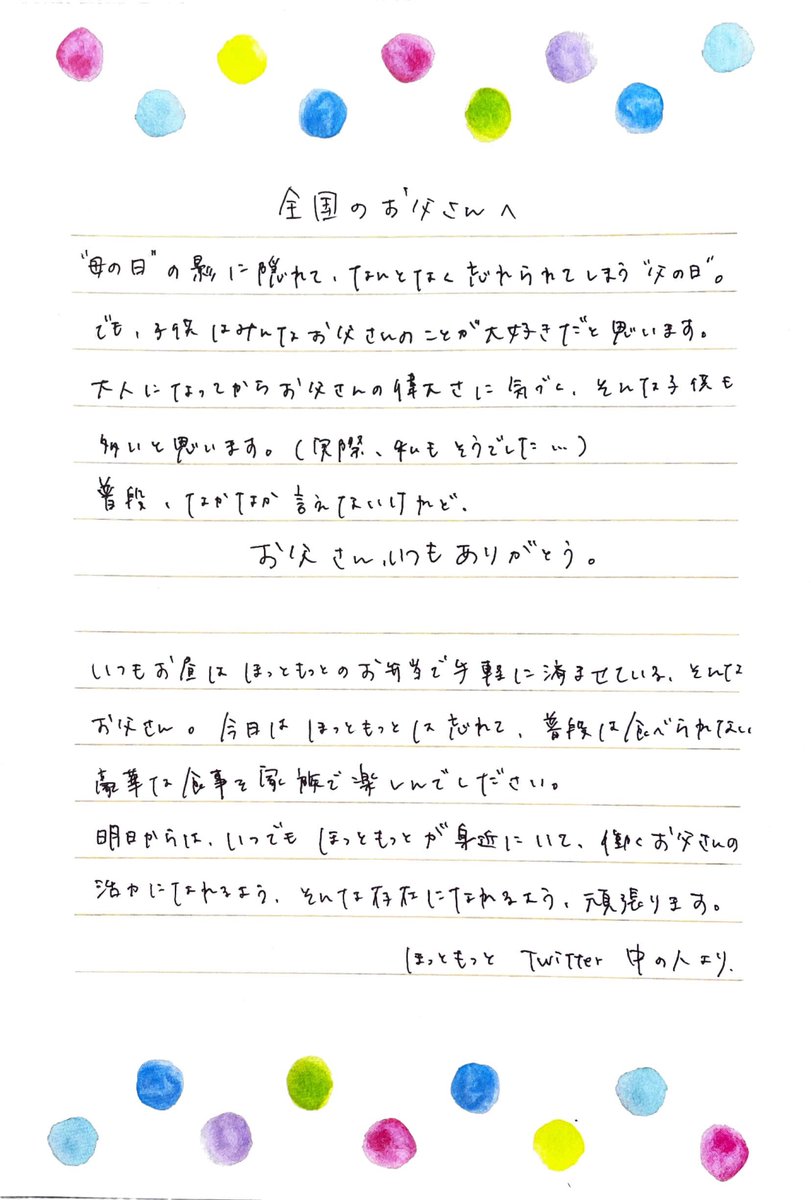 全国のお父さんへ
"母の日"の影に隠れて、なんとなく忘れられてしまう"父の日"。
でも、子供はみんなお父さんのことが大好きだと思います。
大人になってからお父さんの偉大さに気づく、そんな子供も
多いと思います。(実際、私もそうでした…)
普段、なかなか言えないけれど、
お父さん、いつもありがとう。
いつもお昼はほっともっとのお弁当で手軽に済ませている、そんな
お父さん。今日はほっともっとは忘れて、普段は食べられない
豪華な食事を家族で楽しんでください。
明日からは、いつでもほっともっとが身近にいて、働くお父さんの
活力になれるよう、そんな存在になれるよう、頑張ります。
ほっともっと Twitter 中の人より.